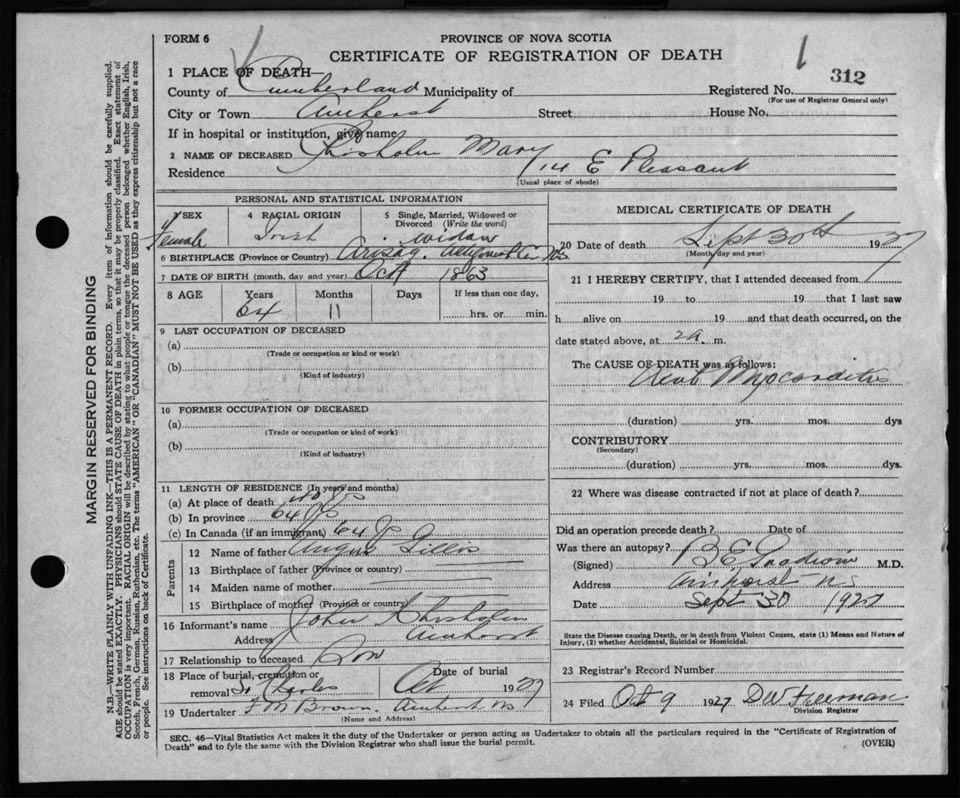 FORM 6
PROVINCE OF NOVA SCOTIA
CERTIFICATE OF REGISTRATION OF DEATH
312
1 PLACE OF DEATH—
County of Cumberland Municipality of Registered No.
(For use of Registrar General only)
City or Town Amherst Street House No.
If in hospital or institution, give name
2 NAME OF DECEASED Chisholm Mary
Residence 14 E Pleasant
(Usual place of abode)
PERSONAL AND STATISTICAL INFORMATION
3 SEX Female
4 RACIAL ORIGIN Irish
5 Single, Married, Widowed or Divorced (Write the word) widow
6 BIRTHPLACE (Province or Country) Arisag. NS
7 DATE OF BIRTH (month, day and year) Oct 1863
8 AGE Years Months Days If less than one day,
64 11 hrs. or min.
9 LAST OCCUPATION OF DECEASED
(a)
(Trade or occupation or kind or work)
(b)
(Kind of industry)
10 FORMER OCCUPATION OF DECEASED
(a)
(Trade or occupation or kind of work)
(b)
(Kind of industry)
11 LENGTH OF RESIDENCE (In years and months)
(a) At place of death 40 yrs
(b) In province 64 yrs
(c) In Canada (if an immigrant) 64 yrs
Parents
12 Name of father Angus Gillis
13 Birthplace of father (Province or country)
14 Maiden name of mother
15 Birthplace of mother (Province or country)
16 Informant's name John Chisholm
Address Amherst
17 Relationship to deceased Son
18 Place of burial, cremation or removal St Charles
Date of burial Oct 1927
19 Undertaker F M Brown. Amherst NS
(Name and Address)
MEDICAL CERTIFICATE OF DEATH
20 Date of death Sept 30th 1927
(Month, day and year)
21 I HEREBY CERTIFY, that I attended deceased from
19 to 19 that I last saw
h alive on 19 and that death occurred, on the
date stated above, at 2 a. m.
The CAUSE OF DEATH was as follows:
Myocarditis
(duration) yrs. mos. dys
CONTRIBUTORY
(Secondary)
(duration) yrs. mos. dys.
22 Where was disease contracted if not at place of death?
Did an operation precede death? Date of
Was there an autopsy?
(Signed) B E Goodwin M.D.
Address Amherst NS
Date Sept 30 1927
State the Disease causing Death, or in death from Violent Causes, state (1) Means and Nature of
Injury, (2) whether Accidental, Suicidal or Homicidal.
23 Registrar's Record Number
24 Filed Oct 9 1927 D W Freeman
Division Registrar
SEC. 46—Vital Statistics Act makes it duty of the Undertaker or person acting as Undertaker to obtain all the particulars required in the "Certificate of Registration of
Death" and to fyle the same with the Division Registrar who shall issue the burial permit.
(OVER)
MARGIN RESERVED FOR BINDING
N.B.—WRITE PLAINLY WITH UNFADING INK—THIS IS A PERMANENT RECORD. Every item of information should be carefully supplied.
AGE should be stated EXACTLY. PHYSICIANS should STATE CAUSE OF DEATH in plain terms, so that it may be properly classified. Exact statement of
OCCUPATION is very important. RACIAL ORIGIN will be described by stating to what people or tongue the deceased person belonged whether English, Irish,
Scotch, French, German, Russian, Ruthenian, etc. The terms "AMERICAN" OR "CANADIAN" MUST NOT BE USED as they express citizenship but not a race
or people. See instructions on back of Certificate.